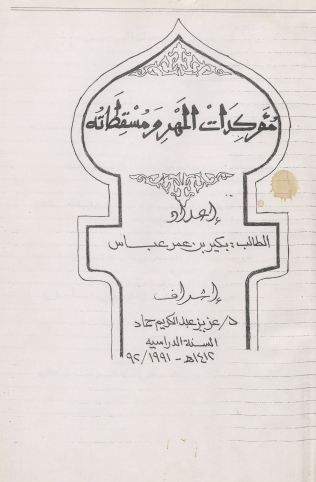 مؤكدات المهر ومسقطاته
إعداد
الطالب: بكير بن عمر عباس
إشراف
د/ عزيز عبد الكريم حماد
السنة الدراسية
١٤١٢هـ - ١٩٩١/٩٢